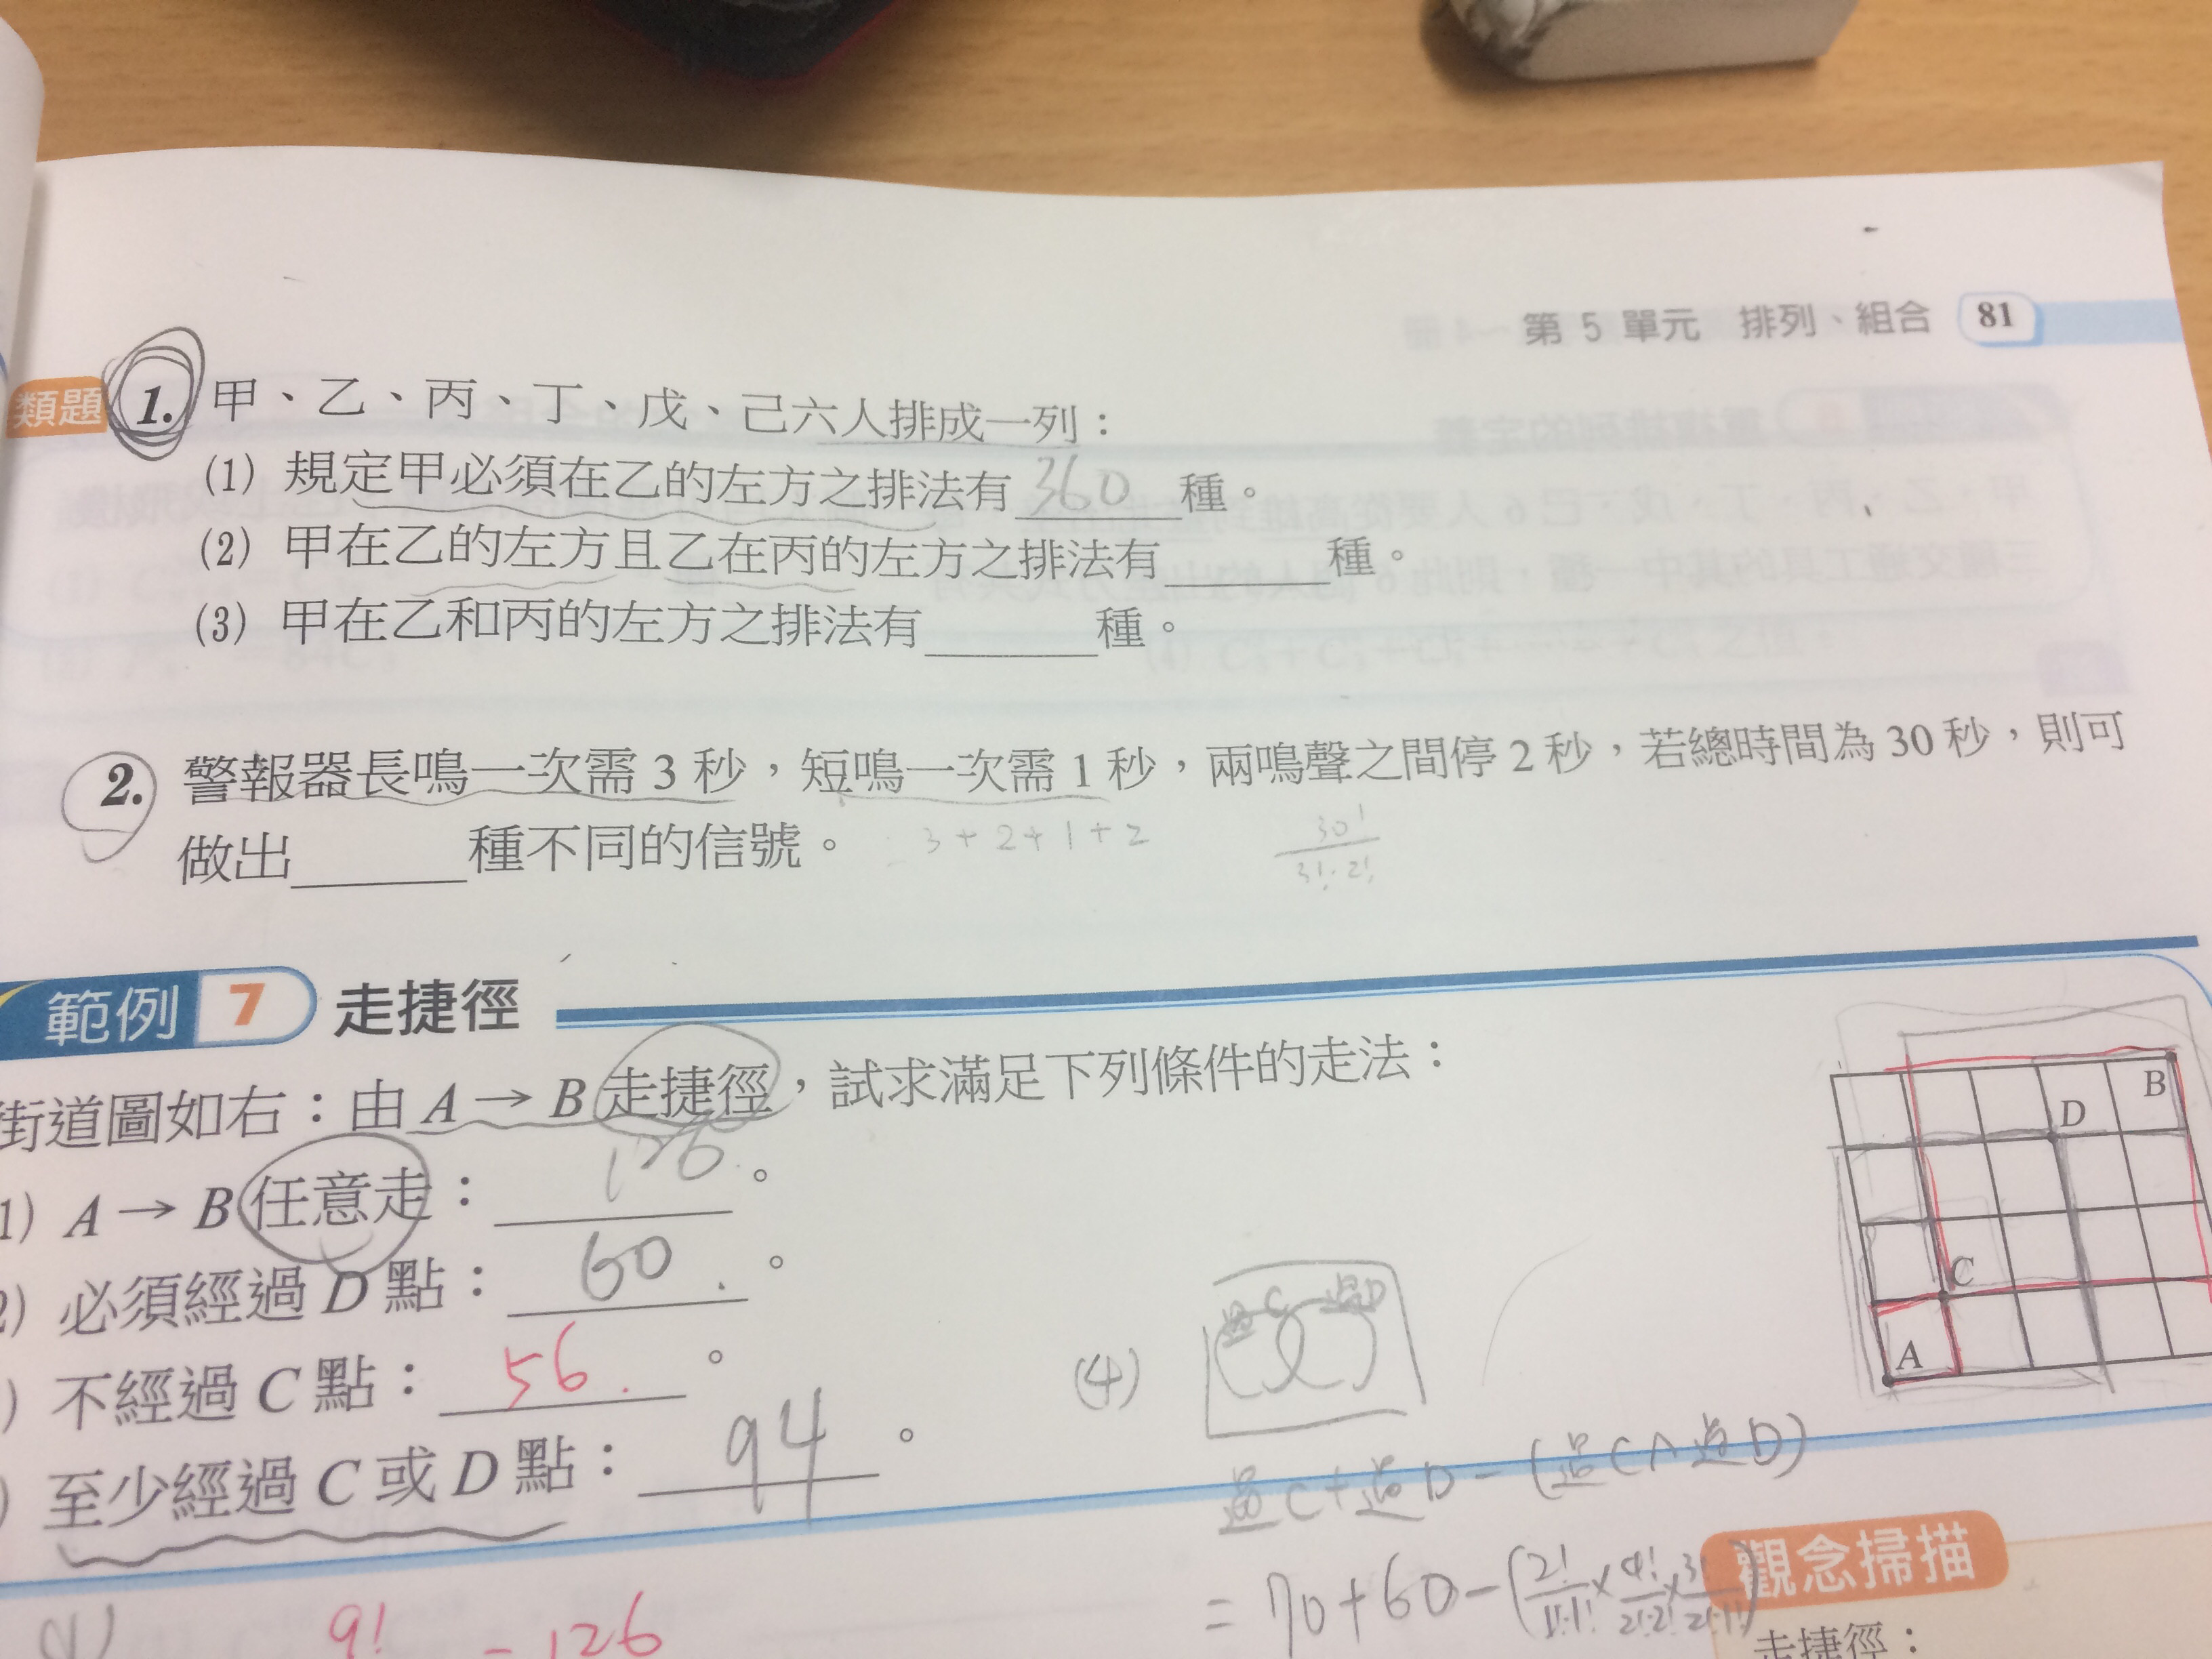 第 5 單元 排列、組合 81
類題 1. 甲、乙、丙、丁、戊、己六人排成一列:
(1) 規定甲必須在乙的左方之排法有 360 種。
(2) 甲在乙的左方且乙在丙的左方之排法有______種。
(3) 甲在乙和丙的左方之排法有______種。
2. 警報器長鳴一次需 3 秒,短鳴一次需 1 秒,兩鳴聲之間停 2 秒,若總時間為 30 秒,則可
做出______種不同的信號。
3+2+1+2
30!/3!·2!
範例 7 走捷徑
街道圖如右:由 A → B 走捷徑,試求滿足下列條件的走法:
1) A → B 任意走: 126 。
2) 必須經過 D 點: 60 。
) 不經過 C 點: 56 。
) 至少經過 C 或 D 點: 94 。
B
D
C
A
(4)
過C 過D
過C+過D-(過C∧過D)
=70+60-(2!/1!·1!×4!/2!·2!×3!/2!·1!)
9! =126
觀念掃描
走捷徑: